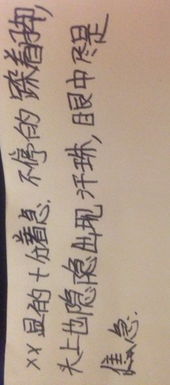 xx显的十分着急.不停的跺着脚,
头上也隐隐出现汗珠,眼中尽是
焦急.